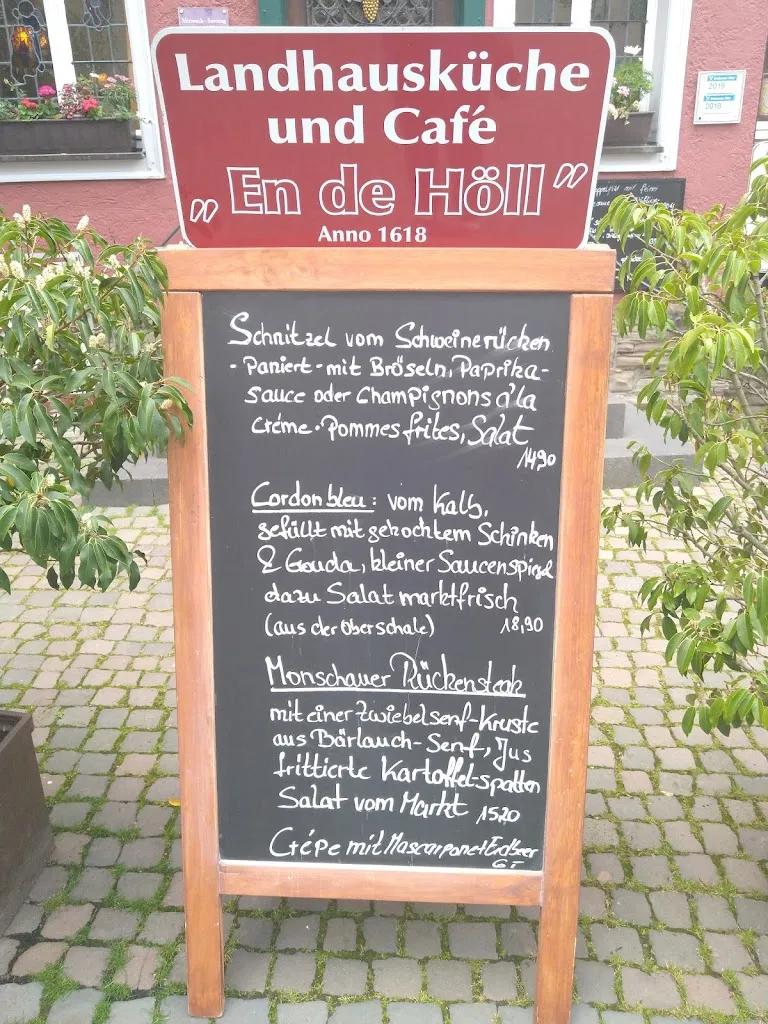 Landhausküche
und Café
„En de Höll”
Anno 1618
Schnitzel vom Schweinerücken
- Paniert - mit Bröseln, Paprika-
sauce oder Champignons a'la
Créme · Pommes frites, Salat
14,90
Cordon bleu: vom Kalb,
gefüllt mit gekochtem Schinken
& Gouda, kleiner Saucenspiegel
dazu Salat marktfrisch
(aus der Oberschale) 18,90
Monschauer Rückensteak
mit einer Zwiebelsenf-Kruste
aus Bärlauch-Senf, Jus
frittierte Kartoffelspalten
Salat vom Markt 15,20
Crépe mit Mascarpone+Erdbeer
6,-
2019
2018